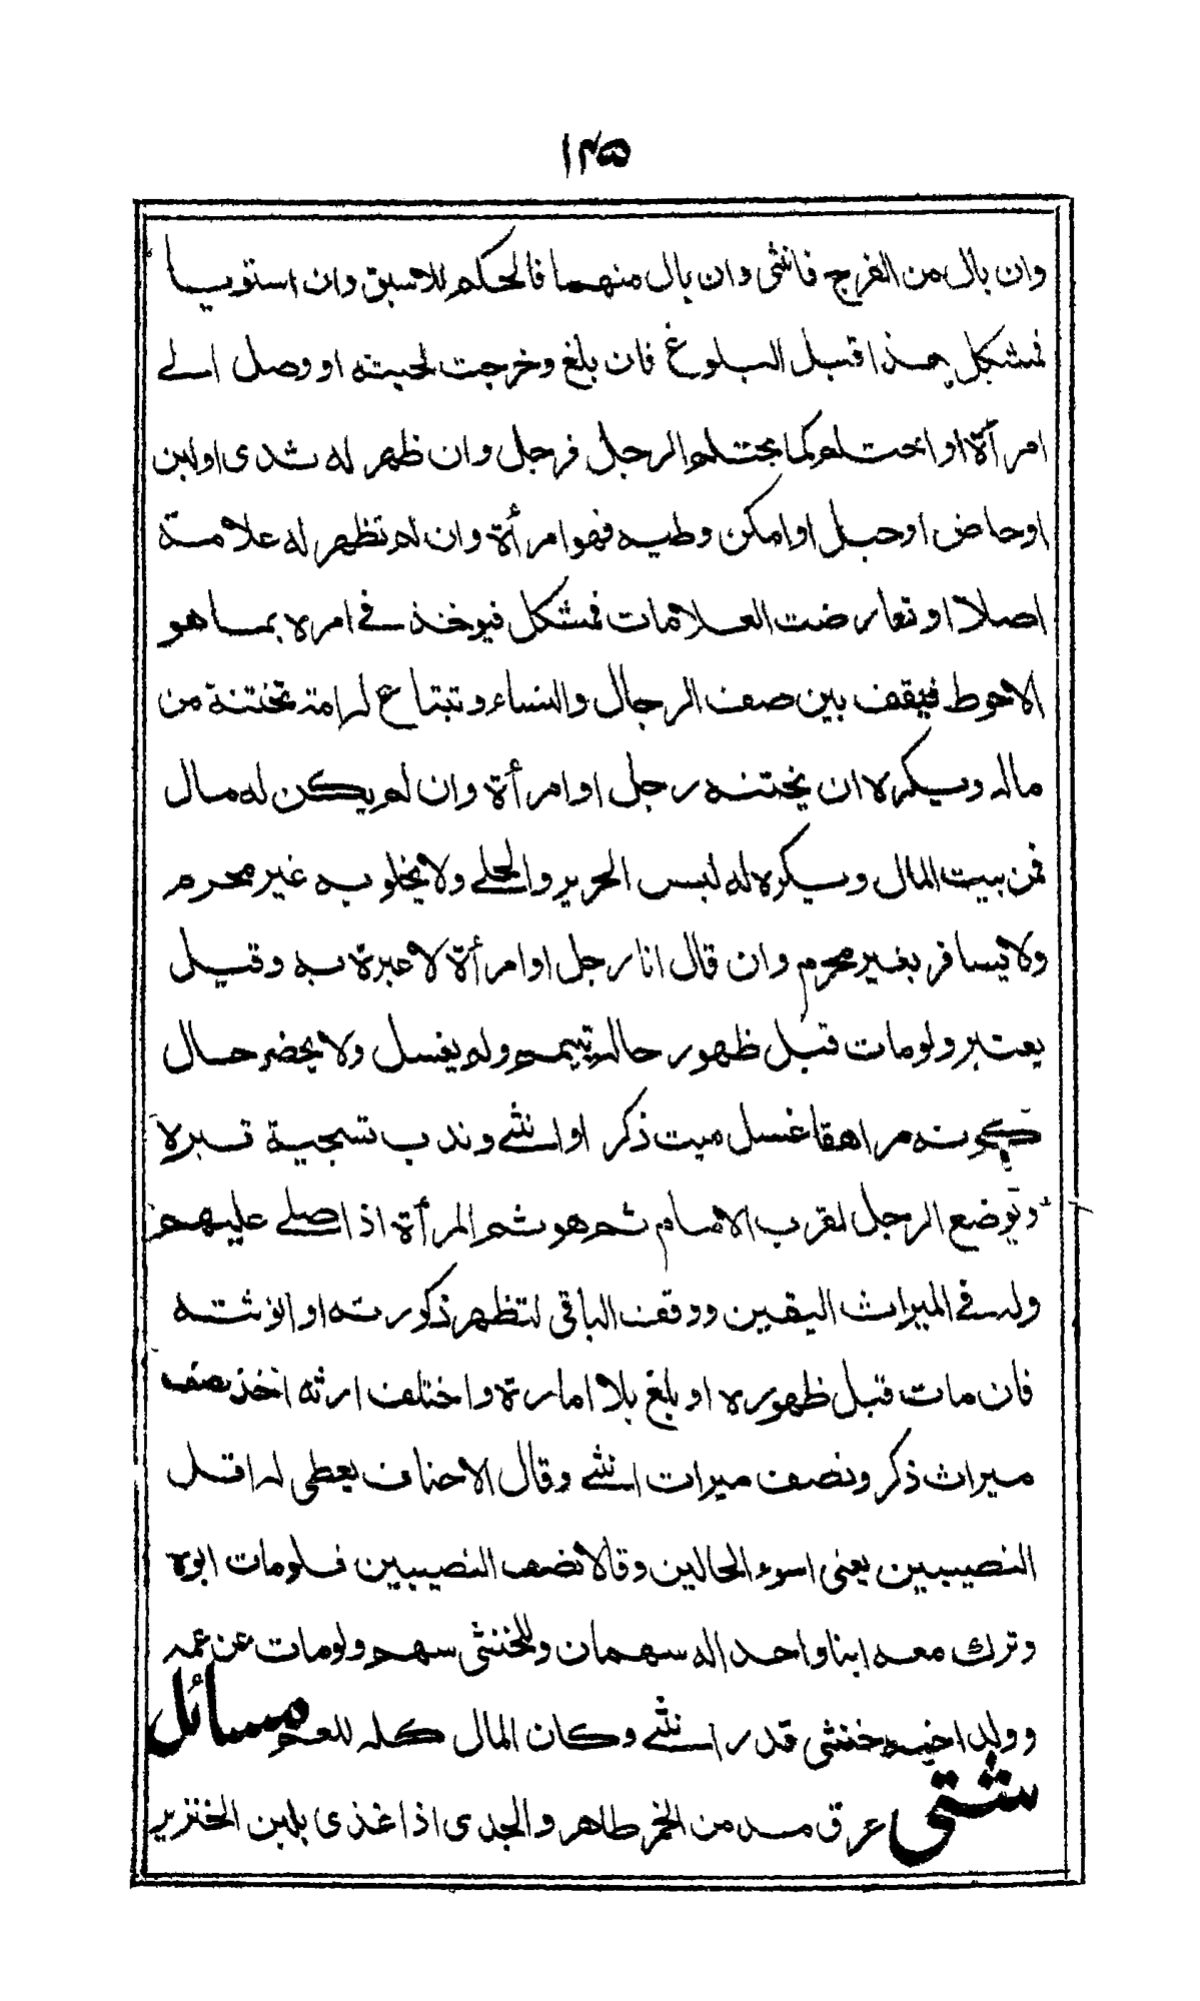 ١٤٥
وان بال من الفرج فانثى وان بال منهما فالحكم للاسبق وان استويا
فمشكل هذا قبل البلوغ فان بلغ وخرجت لحيته او وصل الے
امرأة او احتلم كما يحتلم الرجل فرجل وان ظهر له ثدى او لبن
او حاض او حبل او امكن وطيه فهو امرأة وان لم تظهر له علامة
اصلا او تعارضت العلامات فمشكل فيوخذ فے امره بما هو
الاحوط فيقف بين صف الرجال والنساء وتبتاع له امة تختنه من
ماله ويكره ان يختنه رجل او امرأة وان لم يكن له مال
فمن بيت المال ويكره له لبس الحرير والحلے ولا يخلو به غير محرم
ولا يسافر بغير محرم وان قال انا رجل او امرأة لا عبرة به وقيل
يعتبر ولو مات قبل ظهور حاله تيمم ولم يغسل ولا يحضر حال
كونه مراهقا غسل ميت ذكر او انثے وندب تسجية قبره
ويوضع الرجل لقرب الامام ثم هو ثم المرأة اذا صلے عليهم
وله فے الميراث اليقين ووقف الباقى لتظهر ذكورته او انوثته
فان مات قبل ظهوره او بلغ بلا امارة واختلف ارثه اخذ نصف
ميراث ذكر ونصف ميراث انثے وقال الاحناف يعطى له اقل
النصيبين يعنى اسوء الحالين وقالا نصف النصيبين فلو مات ابوه
وترك معه ابنا واحدا له سهمان وللخنثى سهم ولو مات عن عمه
وولد اخيه خنثى قدر انثے وكان المال كله للعم مسائل
شتى عرق مدمن الخمر طاهر والجدى اذا غذى بلبن الخنزير